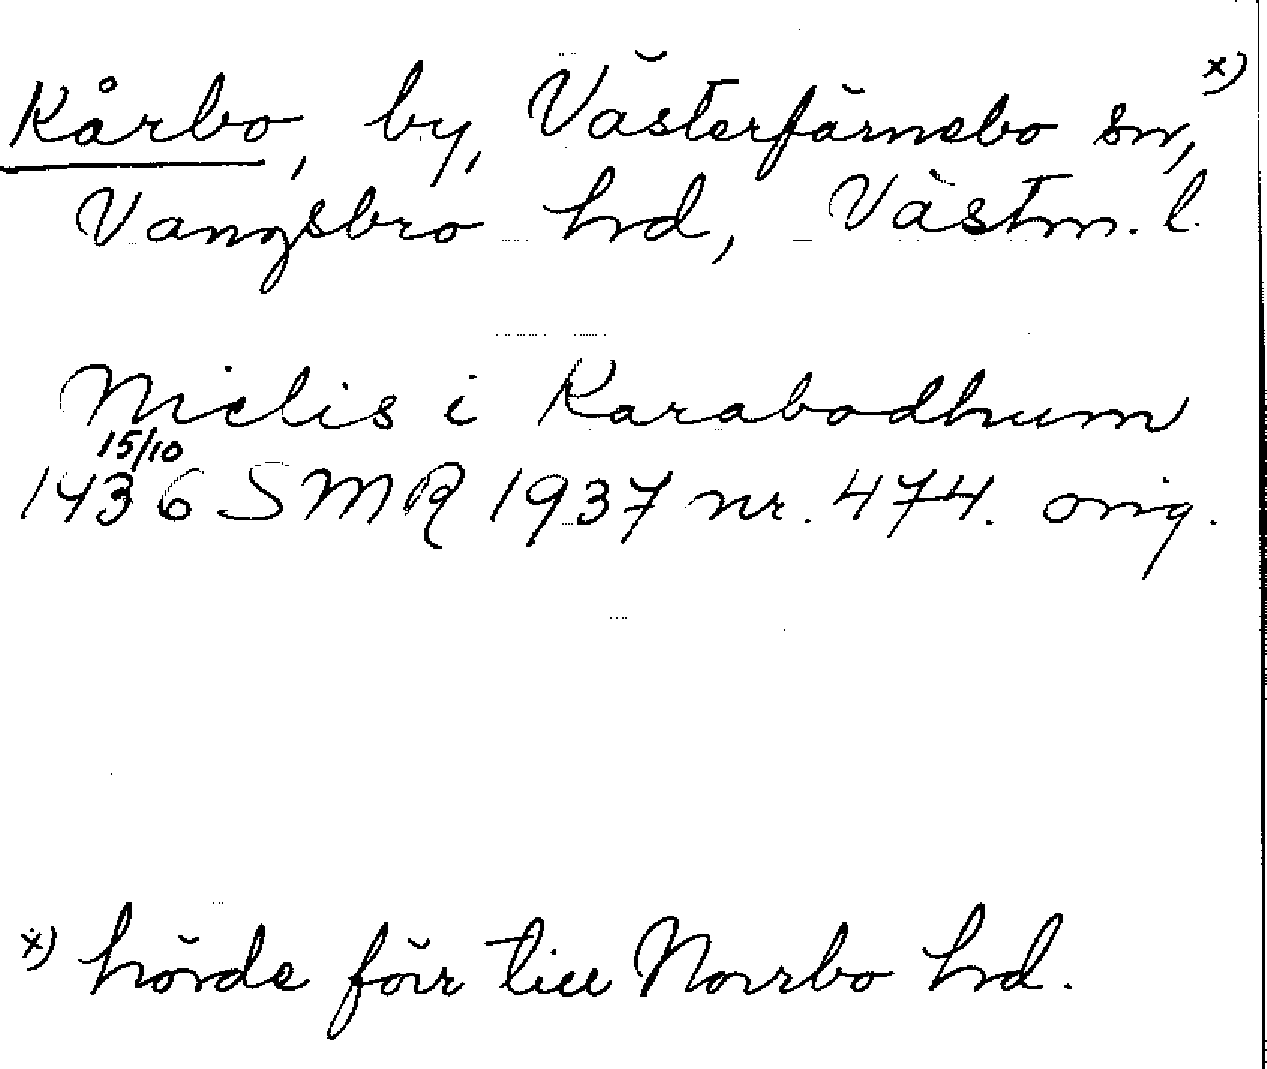 Kårbo, by, Västerfärnebo sn, x)
Vangsbro hd, Västm. l.
Niclis i Karabodhum
15/10
1436 SMR 1937 nr. 474. orig.
x) hörde förr till Norrbo hd.